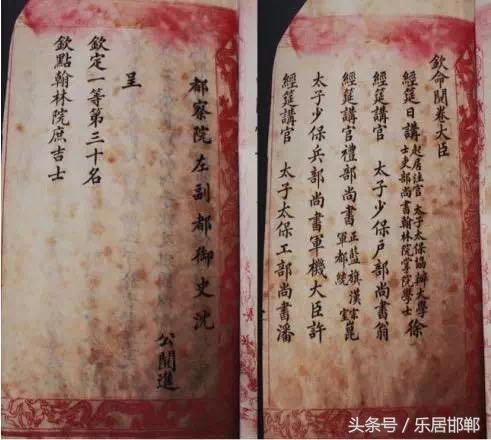 欽命閱卷大臣
經筵日講起居注官 太子太保協辦大學士吏部尚書翰林院掌院學士徐
經筵講官 太子少保戶部尚書翁
經筵講官禮部尚書正藍旗漢軍都統宗室崑
太子少保兵部尚書軍機大臣許
經筵講官 太子太保工部尚書潘
都察院左副都御史沈
公閱進
呈
欽定一等第三十名
欽點翰林院庶吉士
头条号 / 乐居邯郸